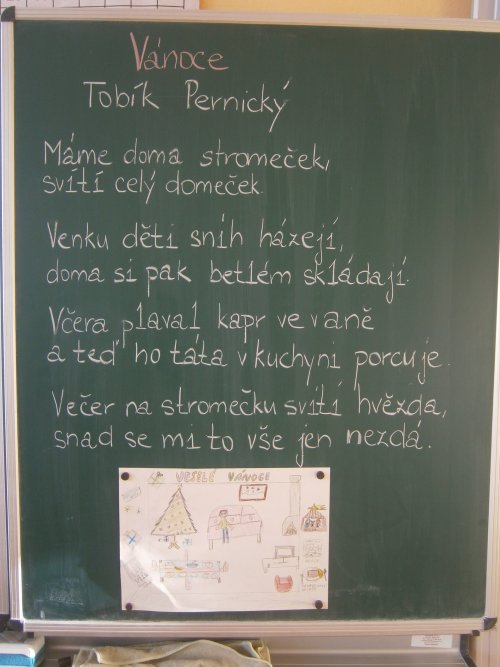 Vánoce
Tobík Pernický
Máme doma stromeček,
svítí celý domeček.
Venku děti sníh házejí,
doma si pak betlém skládají.
Včera plaval kapr ve vaně
a teď ho táta v kuchyni porcuje.
Večer na stromečku svítí hvězda,
snad se mi to vše jen nezdá.
VESELÉ VÁNOCE